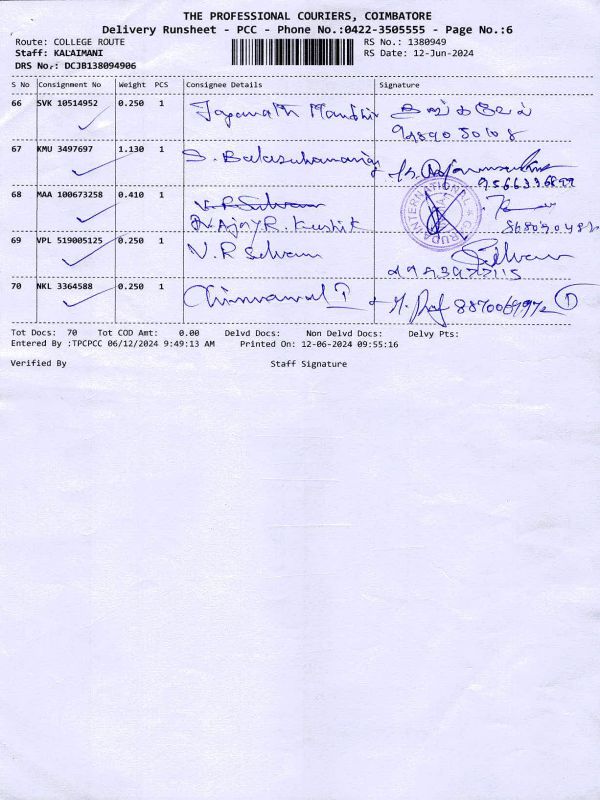 THE PROFESSIONAL COURIERS, COIMBATORE
Delivery Runsheet - PCC - Phone No.:0422-3505555 - Page No.:6
Route: COLLEGE ROUTE RS No.: 1380949
Staff: KALAIMANI RS Date: 12-Jun-2024
DRS No.: DCJB138094906
S No Consignment No Weight PCS Consignee Details Signature
66 SVK 10514952 0.250 1
67 KMU 3497697 1.130 1 S. Balasubramaniam
9566336899
68 MAA 100673258 0.410 1 V.R Selvam
Ajay R. Kaushik
GARUDA INTERNATIONAL
69 VPL 519005125 0.250 1 V.R Selvam Selvam
70 NKL 3364588 0.250 1
Tot Docs: 70 Tot COD Amt: 0.00 Delvd Docs: Non Delvd Docs: Delvy Pts:
Entered By :TPCPCC 06/12/2024 9:49:13 AM Printed On: 12-06-2024 09:55:16
Verified By Staff Signature